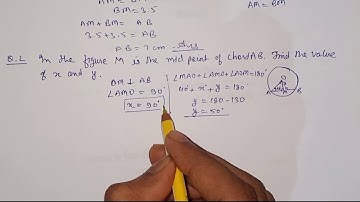 AM = BM
BM = 3.5
AM + BM = AB
3.5 + 3.5 = AB
AB = 7 cm Ans
Q.2 In the figure M is the mid point of chord AB. Find the value
of x and y.
OM ⊥ AB
∠AMO = 90°
x = 90°
∠MAO + ∠AMO + ∠AOM = 180°
40° + x° + y = 180°
y = 180 - 130
y = 50°